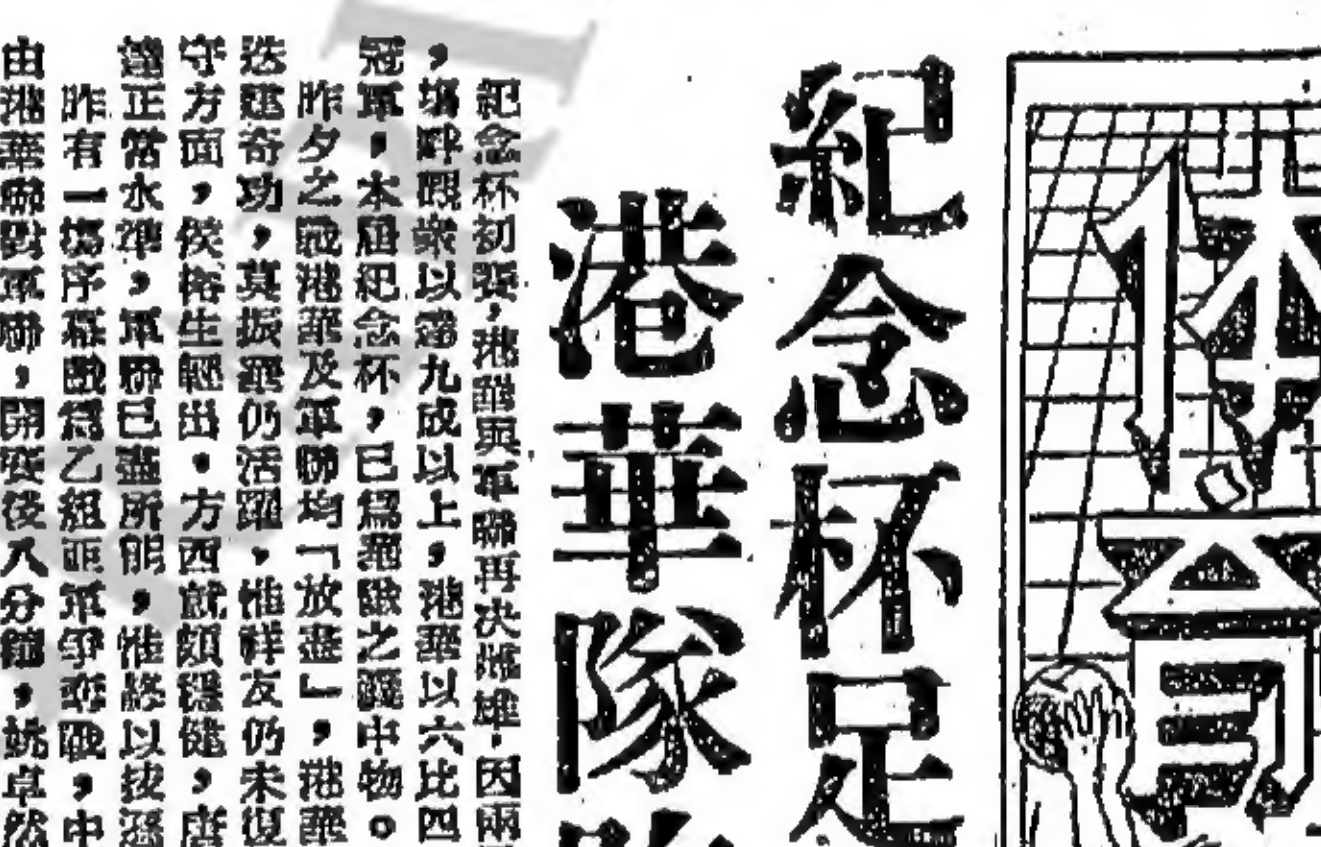 体育
紀念杯足
港華隊
紀念杯初賽，港華與軍聯再決雌雄，因兩
，場畔觀衆以達九成以上，港華以六比四
冠軍，本屆紀念杯，已爲港隊之囊中物。
昨夕之戰港華及軍聯均「放盡」，港華
迭建奇功，莫振華仍活躍，惟祥友仍未復
守方面，侯榕生輕出，方西就頗穩健，
正常水準，軍聯已盡所能，惟終以技
昨有一場序幕戰爲乙組亞軍爭奪戰，中
由港華聯對軍聯，開賽後八分鐘，姚卓然